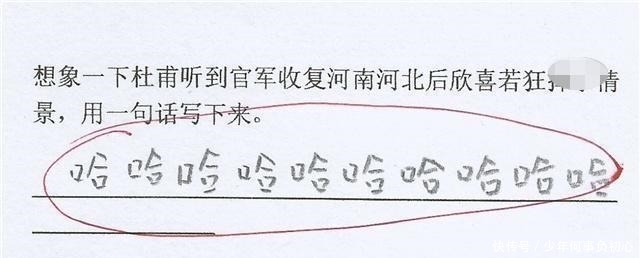 想象一下杜甫听到官军收复河南河北后欣喜若狂情
景，用一句话写下来。
哈哈哈哈哈哈哈哈哈哈